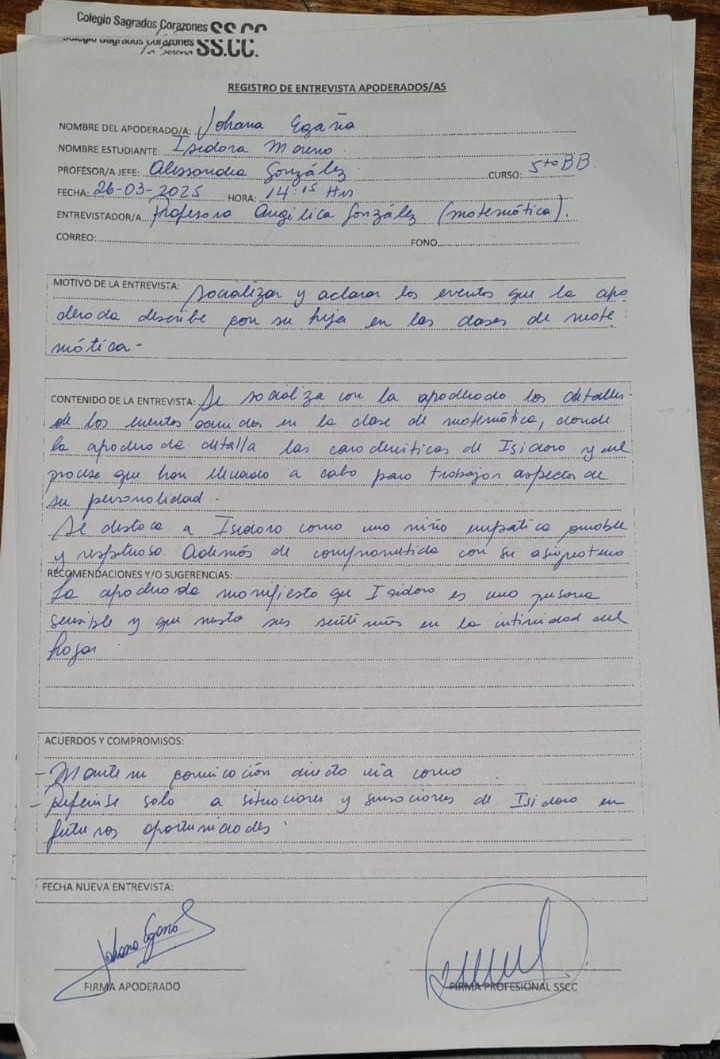 Colegio Sagrados Corazones SS.CC.
Colegio Sagrados Corazones
La Serena SS.CC.
REGISTRO DE ENTREVISTA APODERADOS/AS
NOMBRE DEL APODERADO/A: Johana Egaña
NOMBRE ESTUDIANTE: Isidora Moreno
PROFESOR/A JEFE: Alessandra González CURSO: 5to BB
FECHA: 26-03-2025 HORA: 14:15 Hrs
ENTREVISTADOR/A Profesora Angélica González (matemática).
CORREO: FONO
MOTIVO DE LA ENTREVISTA: Socializar y aclarar los eventos que la apo
derada describe con su hija en las clases de mate
mática-
CONTENIDO DE LA ENTREVISTA: Se socializa con la apoderada los detalles
de los eventos ocurridos en la clase de matemática, donde
la apoderada detalla las características de Isidora y del
proceso que han llevado a cabo para trabajar aspectos de
su personalidad.
Se destaca a Isidora como una niña empática amable
y respetuosa. Además de comprometida con su asignatura
RECOMENDACIONES Y/O SUGERENCIAS:
La apoderada manifiesta que Isidora es una persona
sensible y que sus en la intimidad del
hogar
ACUERDOS Y COMPROMISOS:
- Mantener comunicación directa vía correo
- Referirse solo a situaciones y de Isidora en
futuras oportunidades.
FECHA NUEVA ENTREVISTA:
Johana Egaña
FIRMA APODERADO FIRMA PROFESIONAL SSCC